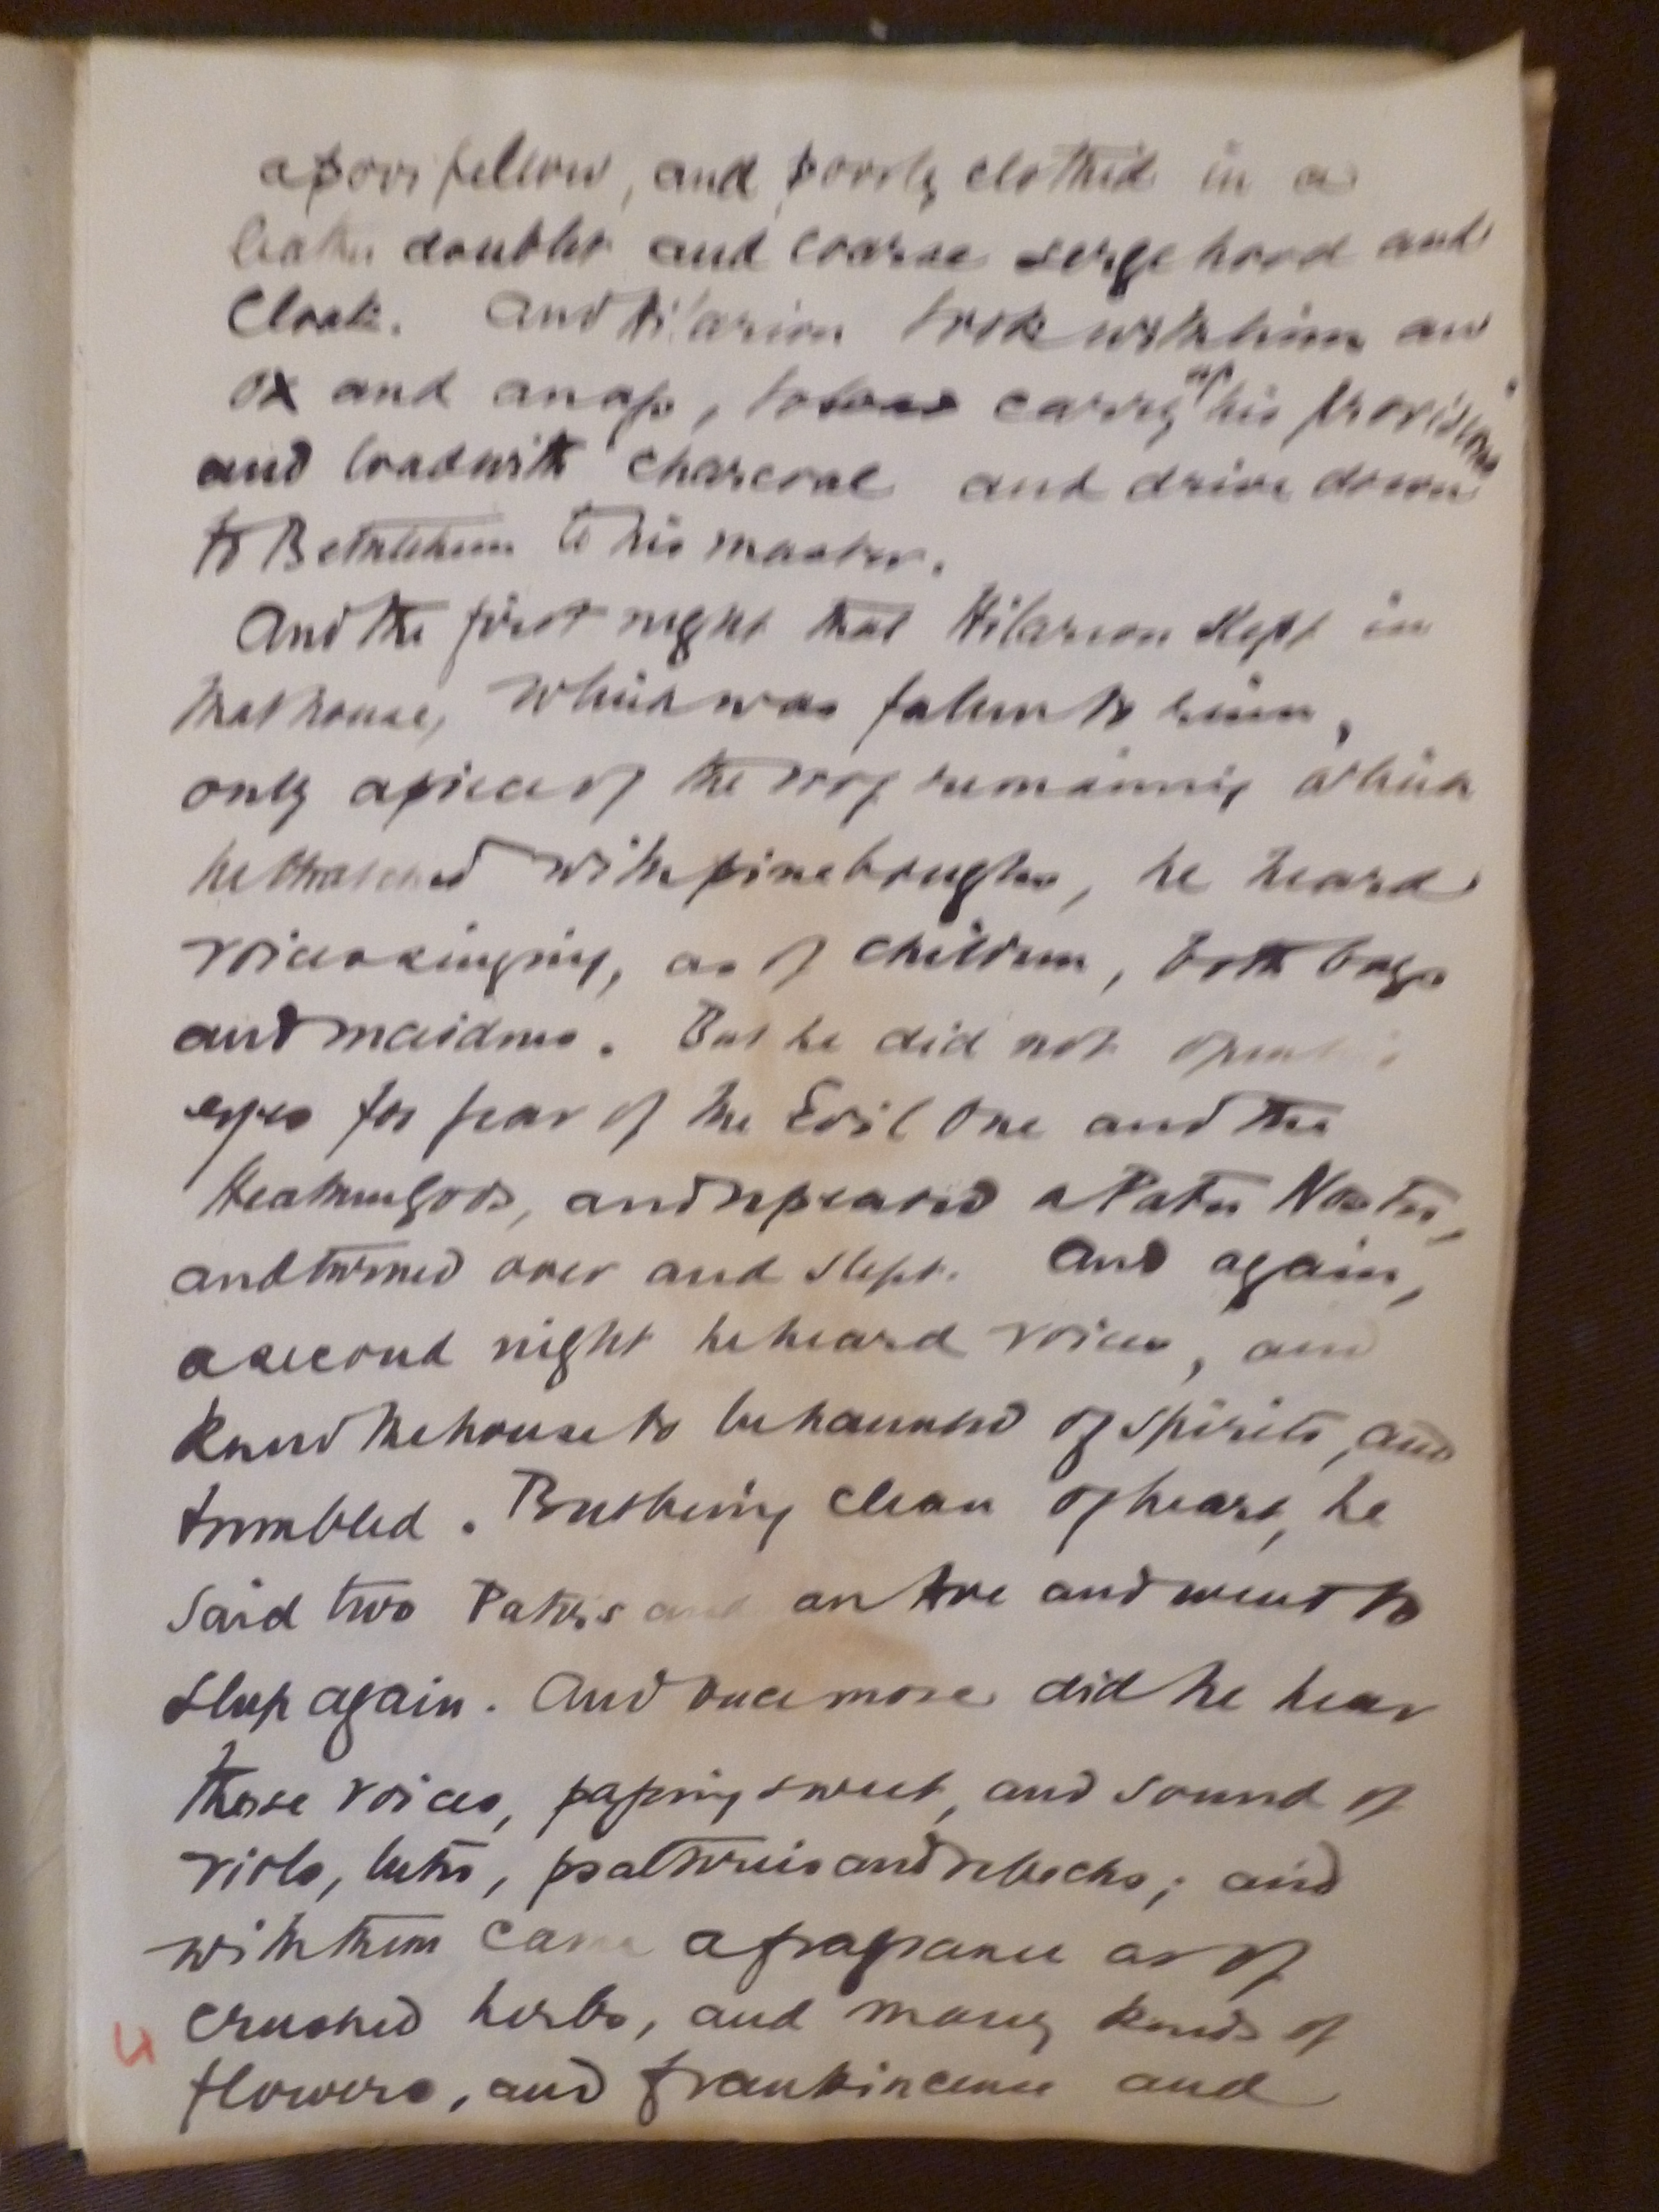 a poor fellow, and poorly clothed in a
leather doublet and coarse serge hood and
Cloak. And Hilarion took with him an
ox and an ass, to carry up his provisions
and load with charcoal and drive down
to Bethlehem to his master.
And the first night that Hilarion slept in
that house, which was fallen to ruin,
only a piece of the roof remaining which
he thatched with pine boughs, he heard
voices singing, as of children, both boys
and maidens. But he did not open his
eyes for fear of the Evil One and the
Heathen Gods, and repeated a Pater Noster,
and turned over and slept. And again,
a second night he heard voices, and
knew the house to be haunted of spirits, and
trembled. But being clean of heart, he
said two Paters and an Ave and went to
sleep again. And once more did he hear
those voices, passing sweet, and sound of
viols, lutes, psalteries and rebecks; and
with them came a fragrance as of
crushed herbs, and many kinds of
flowers, and frankincense and